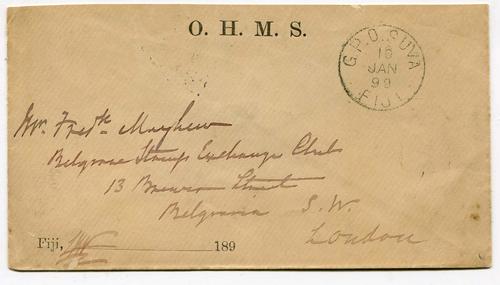 O. H. M. S.
G.P.O. SUVA
16
JAN
99
FIJI
Mr. Fredk Mayhew
Belgrave Stamp Exchange Club
13 Brewer Street
Belgravia S. W.
London
Fiji, 189